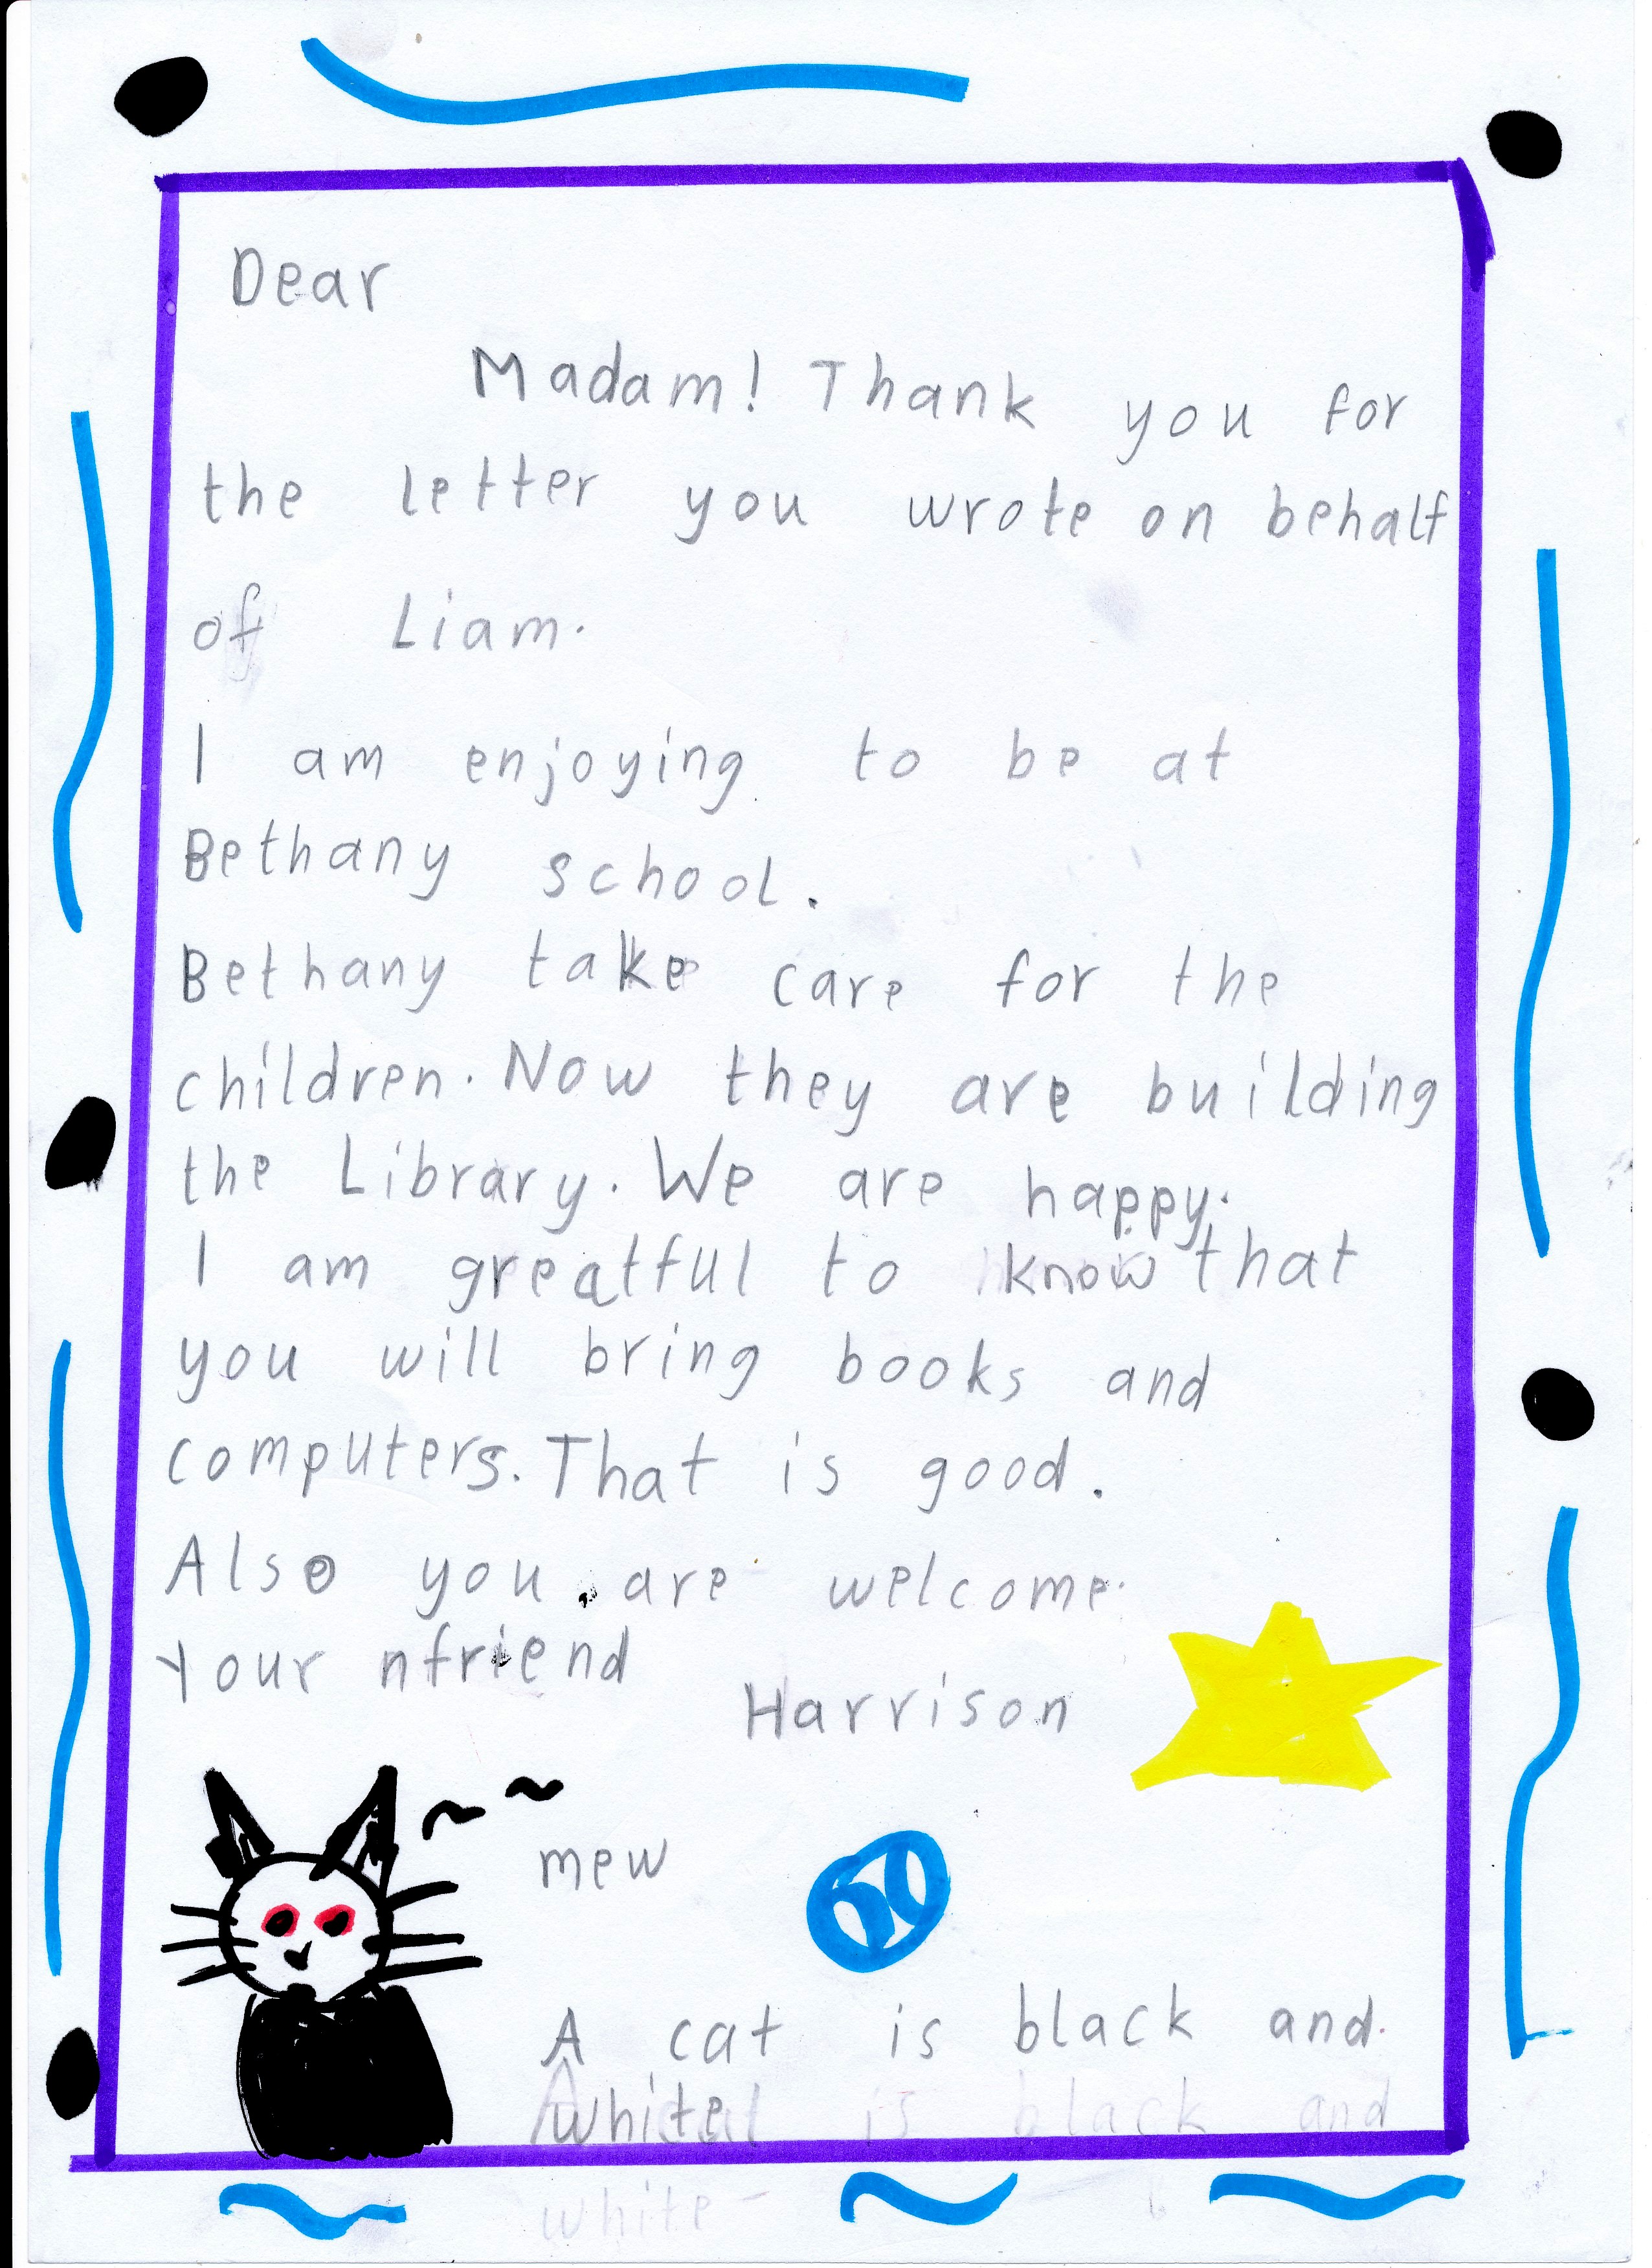 Dear
Madam! Thank you for
the letter you wrote on behalf
of Liam.
I am enjoying to be at
Bethany school.
Bethany take care for the
children. Now they are building
the Library. We are happy.
I am greatful to know that
you will bring books and
computers. That is good.
Also you are welcome.
Your nfriend
Harrison
mew
A cat is black and
white
is black and
white